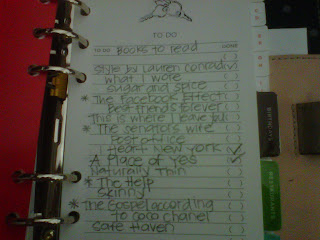 TO DO
TO DO BOOKS to read DONE
style by Lauren Conrad
what I wore
sugar and spice
* The Facebook Effect
Best Friends Forever
This is where I leave
* The Senator's Wife
I Heart New York ✓
A Place of Yes ✓
Naturally Thin
* The Help
Skinny
* The Gospel according
to Coco Chanel
Safe Haven
RESTAURANTS